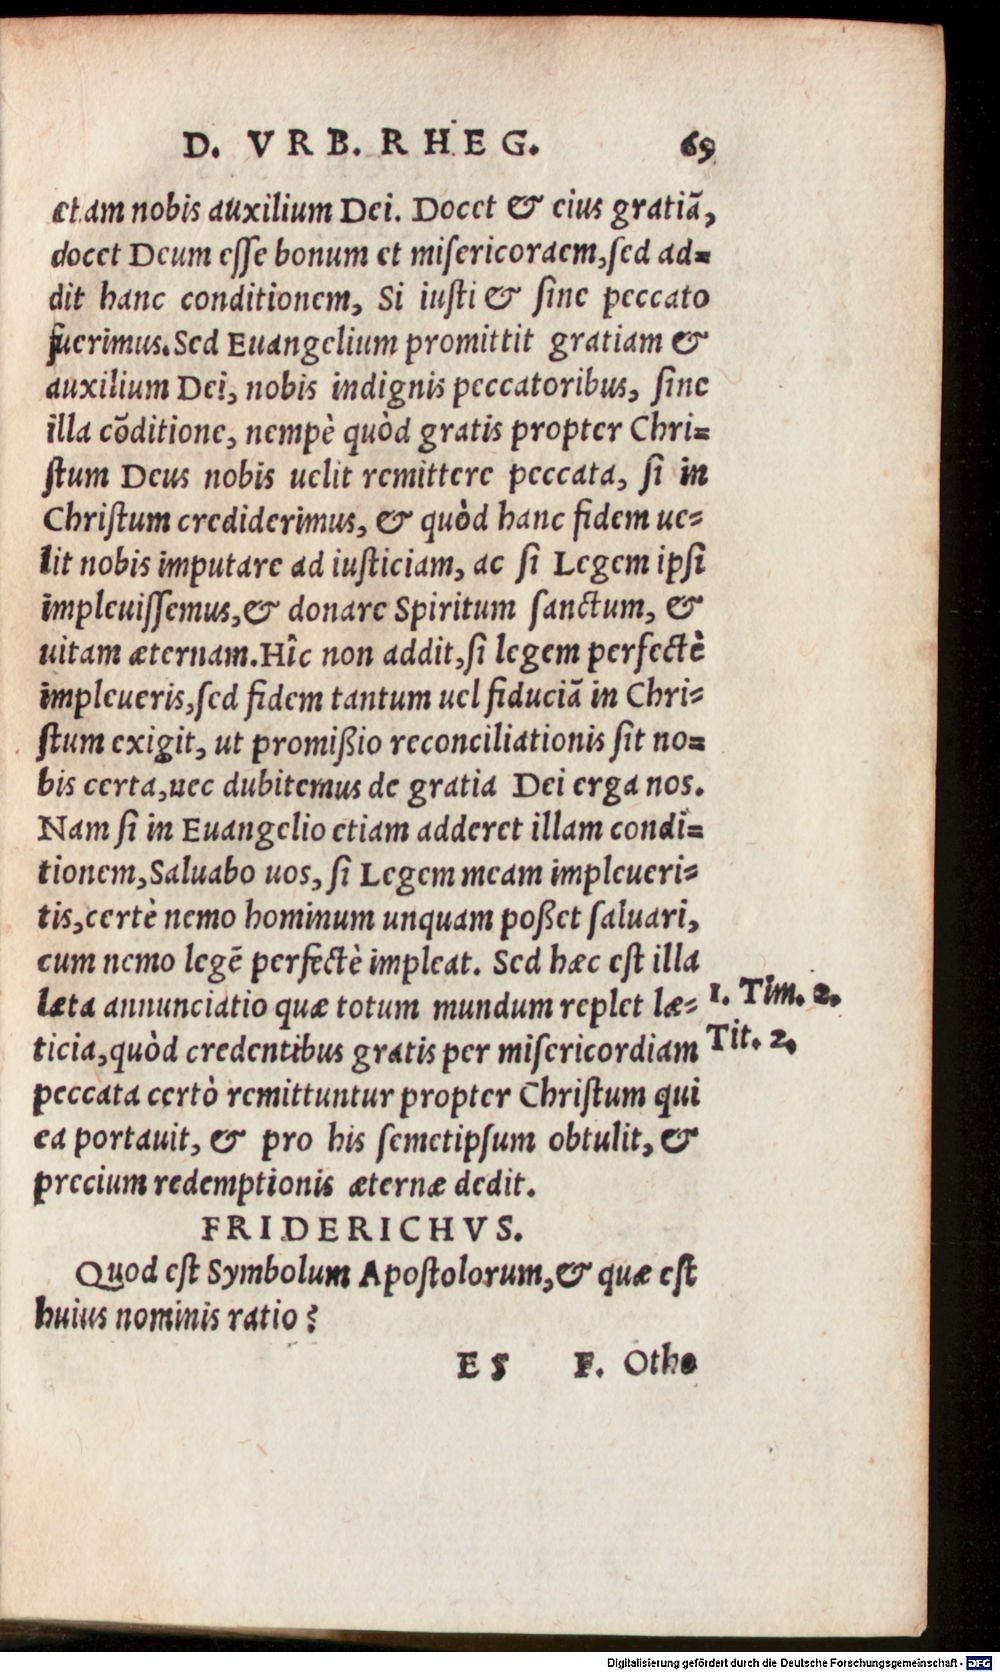 D. VRB. RHEG. 69
etam nobis auxilium Dei. Docet & eius gratiā,
docet Deum eſſe bonum et miſericordem,ſed ad=
dit hanc conditionem, Si iuſti & ſine peccato
fuerimus.Sed Euangelium promittit gratiam &
auxilium Dei, nobis indignis peccatoribus, ſine
illa cōditione, nempè quòd gratis propter Chri=
ſtum Deus nobis uelit remittere peccata, ſi in
Chriſtum crediderimus, & quòd hanc fidem ue=
lit nobis imputare ad iuſticiam, ac ſi Legem ipſi
impleuiſſemus,& donare Spiritum ſanctum, &
uitam æternam.Hîc non addit,ſi legem perfectè
impleueris,ſed fidem tantum uel fiduciā in Chri=
ſtum exigit, ut promißio reconciliationis ſit no=
bis certa,nec dubitemus de gratia Dei erga nos.
Nam ſi in Euangelio etiam adderet illam condi=
tionem,Saluabo uos, ſi Legem meam impleueri=
tis,certè nemo hominum unquam poßet ſaluari,
cum nemo legē perfectè impleat. Sed hæc eſt illa
læta annunciatio quæ totum mundum replet læ= 1. Tim. 2.
ticia,quòd credentibus gratis per miſericordiam Tit. 2.
peccata certò remittuntur propter Chriſtum qui
ea portauit, & pro his ſemetipſum obtulit, &
precium redemptionis æternæ dedit.
FRIDERICHVS.
Quod eſt Symbolum Apoſtolorum,& quæ eſt
huius nominis ratio?
E 5 F. Otho
Digitalisierung gefördert durch die Deutsche Forschungsgemeinschaft - DFG